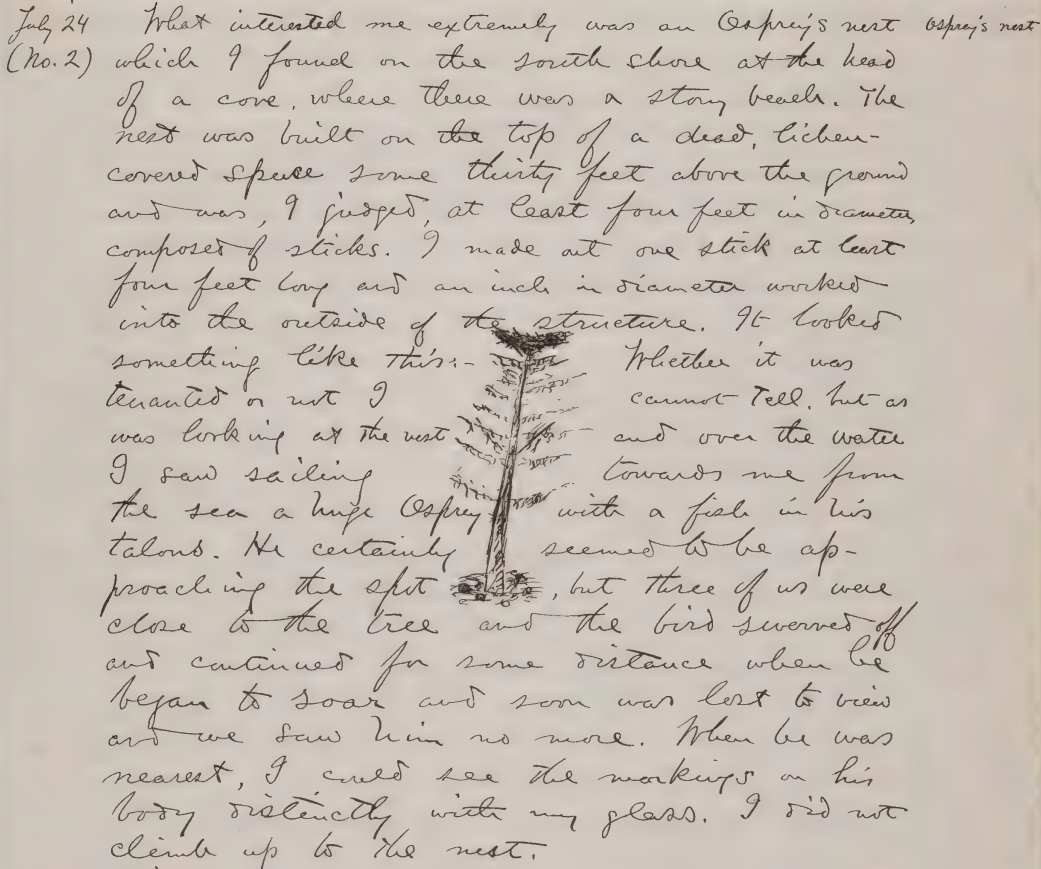 July 24 What interested me extremely was an Osprey's nest Osprey's nest
(No. 2) which I found on the south shore at the head
of a cove, where there was a stony beach. The
nest was built on the top of a dead, lichen-
covered spruce some thirty feet above the ground
and was, I judged, at least four feet in diameter,
composed of sticks. I made out one stick at least
four feet long and an inch in diameter worked
into the outside of the structure. It looked
something like this:- Whether it was
tenanted or not I cannot tell, but as
was looking at the nest and over the water
I saw sailing towards me from
the sea a huge Osprey with a fish in his
talons. He certainly seemed to be ap-
proaching the spot, but three of us were
close to the tree and the bird swerved off
and continued for some distance when he
began to soar and soon was lost to view
and we saw him no more. When he was
nearest, I could see the markings on his
body distinctly with my glass. I did not
climb up to the nest.